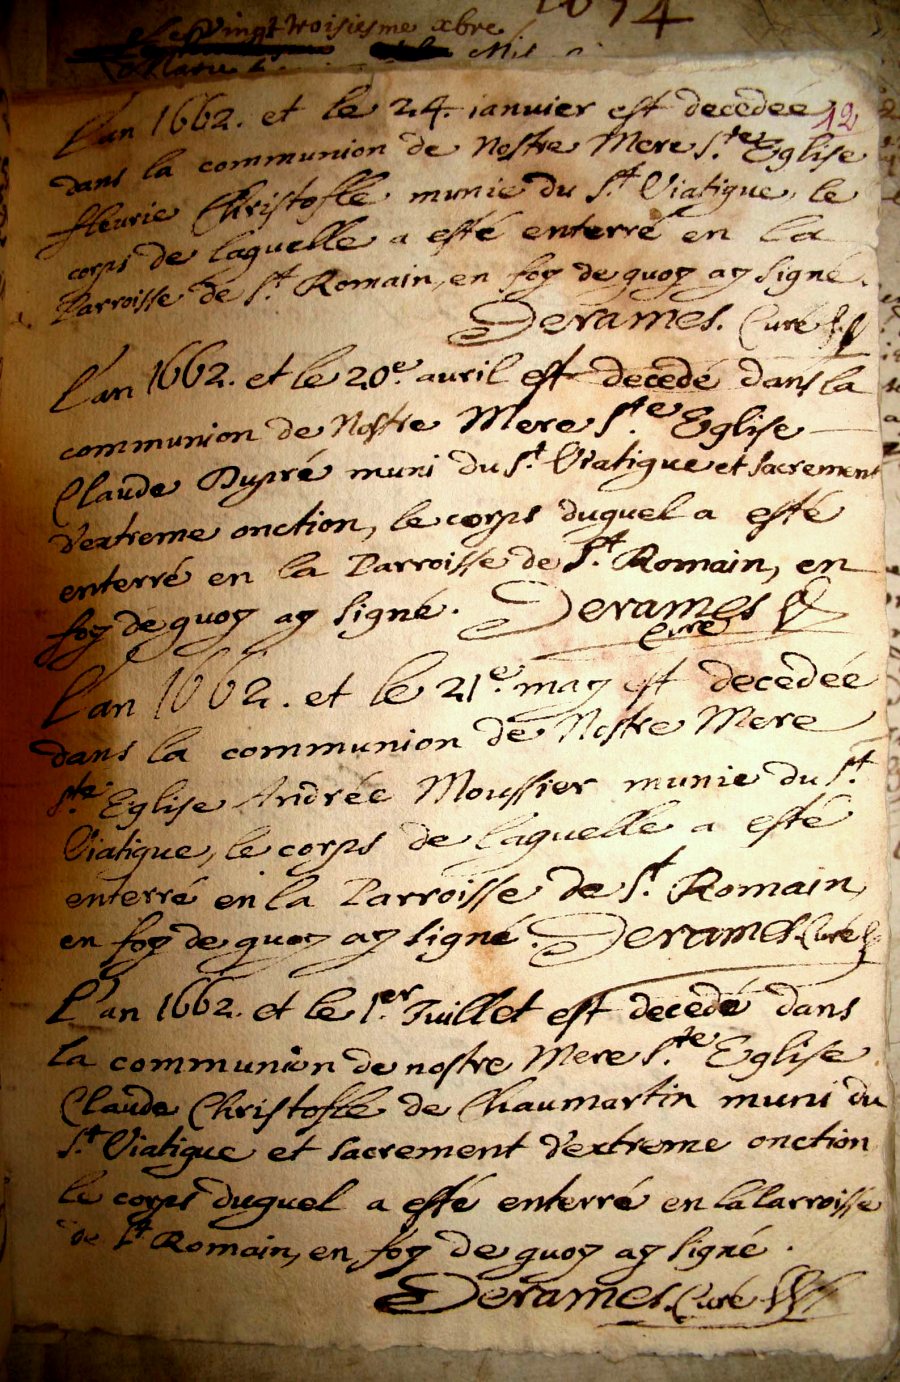 1674
le Vingt troisiesme xbre
L'an 1662. et le 24. ianvier est decedée
12
dans la communion de Nostre Mere S.te Eglise
fleurie Christofle munie du S.t Viatique, le
corps de laquelle a esté enterré en la
Parroisse de S.t Romain, en foy de quoy ay signé.
Derames. Curé
L'an 1662. et le 20e. auril est decedé dans la
communion de Nostre Mere S.te Eglise
Claude Dupré muni du S.t Viatique et sacrement
d'extreme onction, le corps duquel a esté
enterré en la Parroisse de S.t Romain, en
foy de quoy ay signé. Derames
Curé
L'an 1662. et le 21e. may est decedée
dans la communion de Nostre Mere
S.te Eglise Andrée Moussier munie du S.t
Viatique, le corps de laquelle a esté
enterré en la Parroisse de S.t Romain,
en foy de quoy ay signé. Derames. Curé
L'an 1662. et le 1.er Juillet est decedé dans
la communion de nostre Mere S.te Eglise
Claude Christofle de Chaumartin muni du
S.t Viatique et sacrement d'extreme onction
le corps duquel a esté enterré en la Parroisse
de S.t Romain, en foy de quoy ay signé.
Derames. Curé